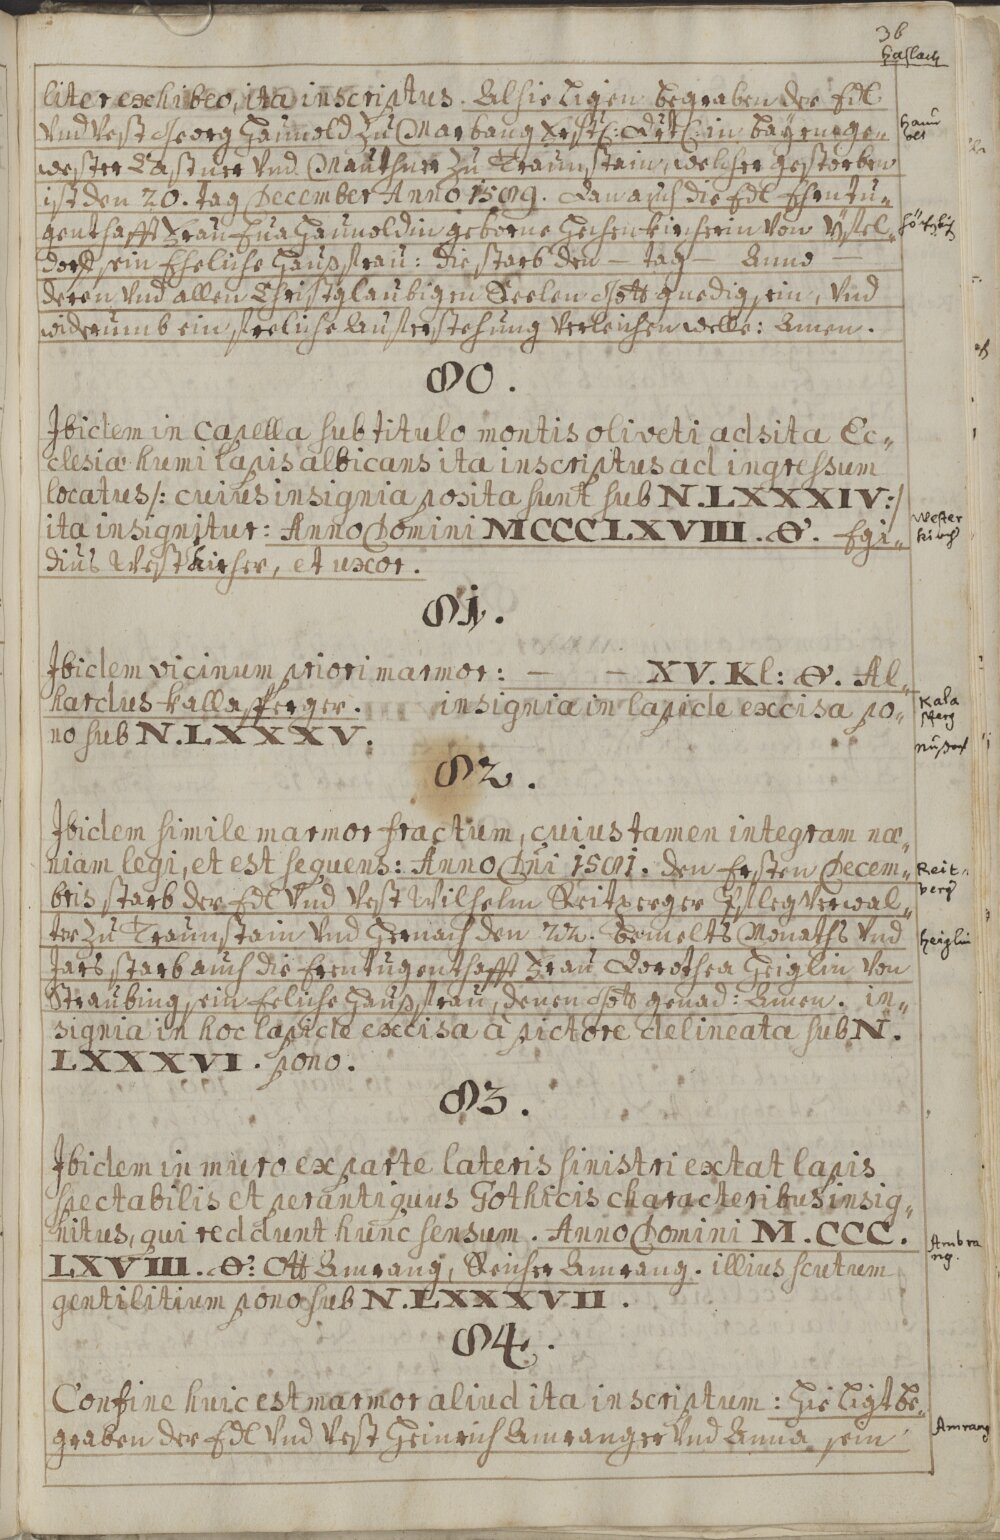 36
Haslach
liter exhibeo, ita inscriptus. Alhie Ligen begraben der Edl
Vnd Vest Georg Haunold Zu Marbang in Bayrn gen
wester Castner Vnd Mauthner Zu Traunstain, welcher gestorben
ist den 20. tag December Anno 1589. dan auch die Edl Ehrntu-
genthafft Frau Eua Haunoldin geborne Hechenkircherin von Yffel-
dorf sein Eheliche Haußfrau: die starb den — tag — Anno —
deren Vnd allen Christglaubigen Seelen Gott gnedig sein, Vnd
widerumb ein freliche Aufferstehung Verleichen welle: Amen.
80.
Ibidem in Capella sub titulo montis oliveti adsita Ec-
clesiæ humi lapis albicans ita inscriptus ad ingressum
locatus /: cuius insignia posita sunt sub N. LXXXIV :/
ita insignitur: Anno Domini MCCCLXVIII. Ꙩ. Egi-
dius Westkircher, et uxor.
Wester
kirch
81.
Ibidem vicinum priori marmor: — — XV. Kl: Ꙩ. Al-
hardus Kallasperger. insignia in lapide excisa po-
no sub N. LXXXV.
Kala
sperg
82.
Ibidem simile marmor fractum, cuius tamen integram næ-
niam legi, et est sequens: Anno Dni 1581. den Ersten Decem-
bris starb der Edl Vnd Vest Wilhelm Reitperger Pfleg Verwal-
ter Zu Traunstain Vnd Hernach den 22. bemelts Monaths Vnd
Jars starb auch die Erentugenthafft Frau Dorothea Heiglin Von
Straubing sein Eeliche Haußfrau, denen Gott genad: Amen. in-
signia in hoc lapide excisa à pictore delineata sub N.
LXXXVI. pono.
Reit-
berg
Heiglin
83.
Ibidem in muro ex parte lateris sinistri extat lapis
spectabilis et perantiquus Gothicis characteribus insig-
nitus, qui reddunt hunc sensum. Anno Domini M. CCC.
LXVIII. Ꙩ: Ott Amrang, Reicher Amrang. illius scutum
gentilitium pono sub N. LXXXVII.
Ambra
ng.
84.
Confine huic est marmor aliud ita inscriptum: Hie Ligt be-
graben der Edl Vnd Vest Heinrich Amranger Vnd Anna sein
Amrang